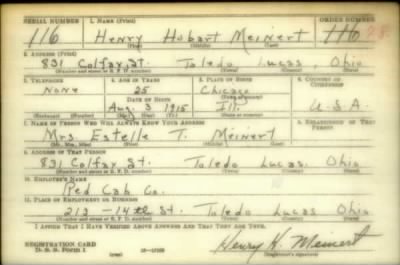 SERIAL NUMBER 1. NAME (Print) ORDER NUMBER
116 Henry Hobart Meinert 1116
(First) (Middle) (Last)
2. ADDRESS (Print)
831 Colfax St. Toledo Lucas, Ohio
(Number and street or R. F. D. number) (Town) (County) (State)
3. TELEPHONE 4. AGE IN YEARS 5. PLACE OF BIRTH 6. COUNTRY OF CITIZENSHIP
None 25 Chicago
DATE OF BIRTH (Town or county)
Aug. 3 1915 Ill. U.S.A.
(Mo.) (Day) (Yr.)
7. NAME OF PERSON WHO WILL ALWAYS KNOW YOUR ADDRESS 8. RELATIONSHIP OF THAT PERSON
Mrs. Estelle T. Meinert
(Mr., Mrs., Miss) (First) (Middle) (Last)
9. ADDRESS OF THAT PERSON
831 Colfax St. Toledo Lucas, Ohio
(Number and street or R. F. D. number) (Town) (County) (State)
10. EMPLOYER'S NAME
Red Cab Co.
11. PLACE OF EMPLOYMENT OR BUSINESS
213 - 14th St. Toledo Lucas Ohio
(Number and street or R. F. D. number) (Town) (County) (State)
I AFFIRM THAT I HAVE VERIFIED ABOVE ANSWERS AND THAT THEY ARE TRUE.
REGISTRATION CARD
D. S. S. Form 1 (over) Henry H. Meinert